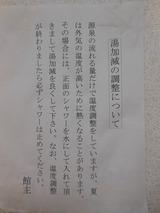 湯加減の調整について
源泉の流れる量だけで温度調整をしていますが、夏
は外気の温度が高いために熱くなることがあります。
その場合には、正面のシャワーを水にして入れて頂
きまして湯加減を良くして下さい。なお、温度調整
が終わりましたら必ずシャワーは止めてください。
館主